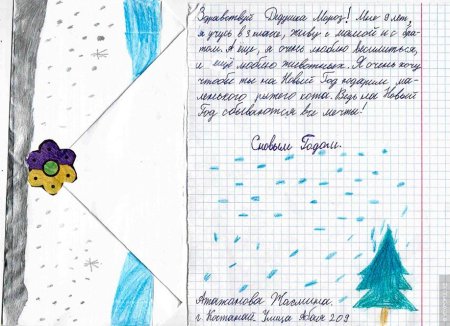 Здравствуй Дедушка Мороз! Мне 9 лет,
я учусь в 3 классе, живу с мамой и с бра-
том. А еще, я очень люблю веселиться,
и ещё люблю животных. Я очень хочу
чтобы ты на Новый Год подарил ма-
ленького рыжего кота. Ведь на Новый
Год сбываются все мечты!
С новым Годом.
Атажанова Жасмина.
г. Костанай Улица Абая 209